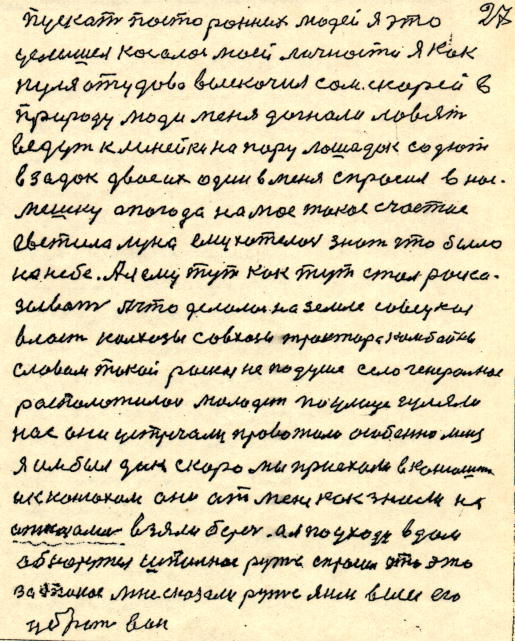 27
пускать посторонних людей я это
услышел косалос моей личности я как
пуля отудова выскочил сам. скорей в
природу люди меня дагнали ловят
ведут к линейки на пару лошадок содют
взадок двоеих один в меня спросил в нос-
мешку а погода на мое такое счастие
светила луна ему хотелос знат что было
на небе. А я ему тут как тут стал роска-
зыват што делалос на земле совецкая
власт колхозы совхозы трактора комбайны
словам такой роскас не подуше село генералное
расположилос молодеж по улице гуляли
нас они устричали провожали особенно мены
я им был дан скоро мы приехали в
к они от мене как знаели на
взяли берег. а я по уходу в дом
ружие спросил што это
за такое мне сказали ружие я им велел его
убрат вон